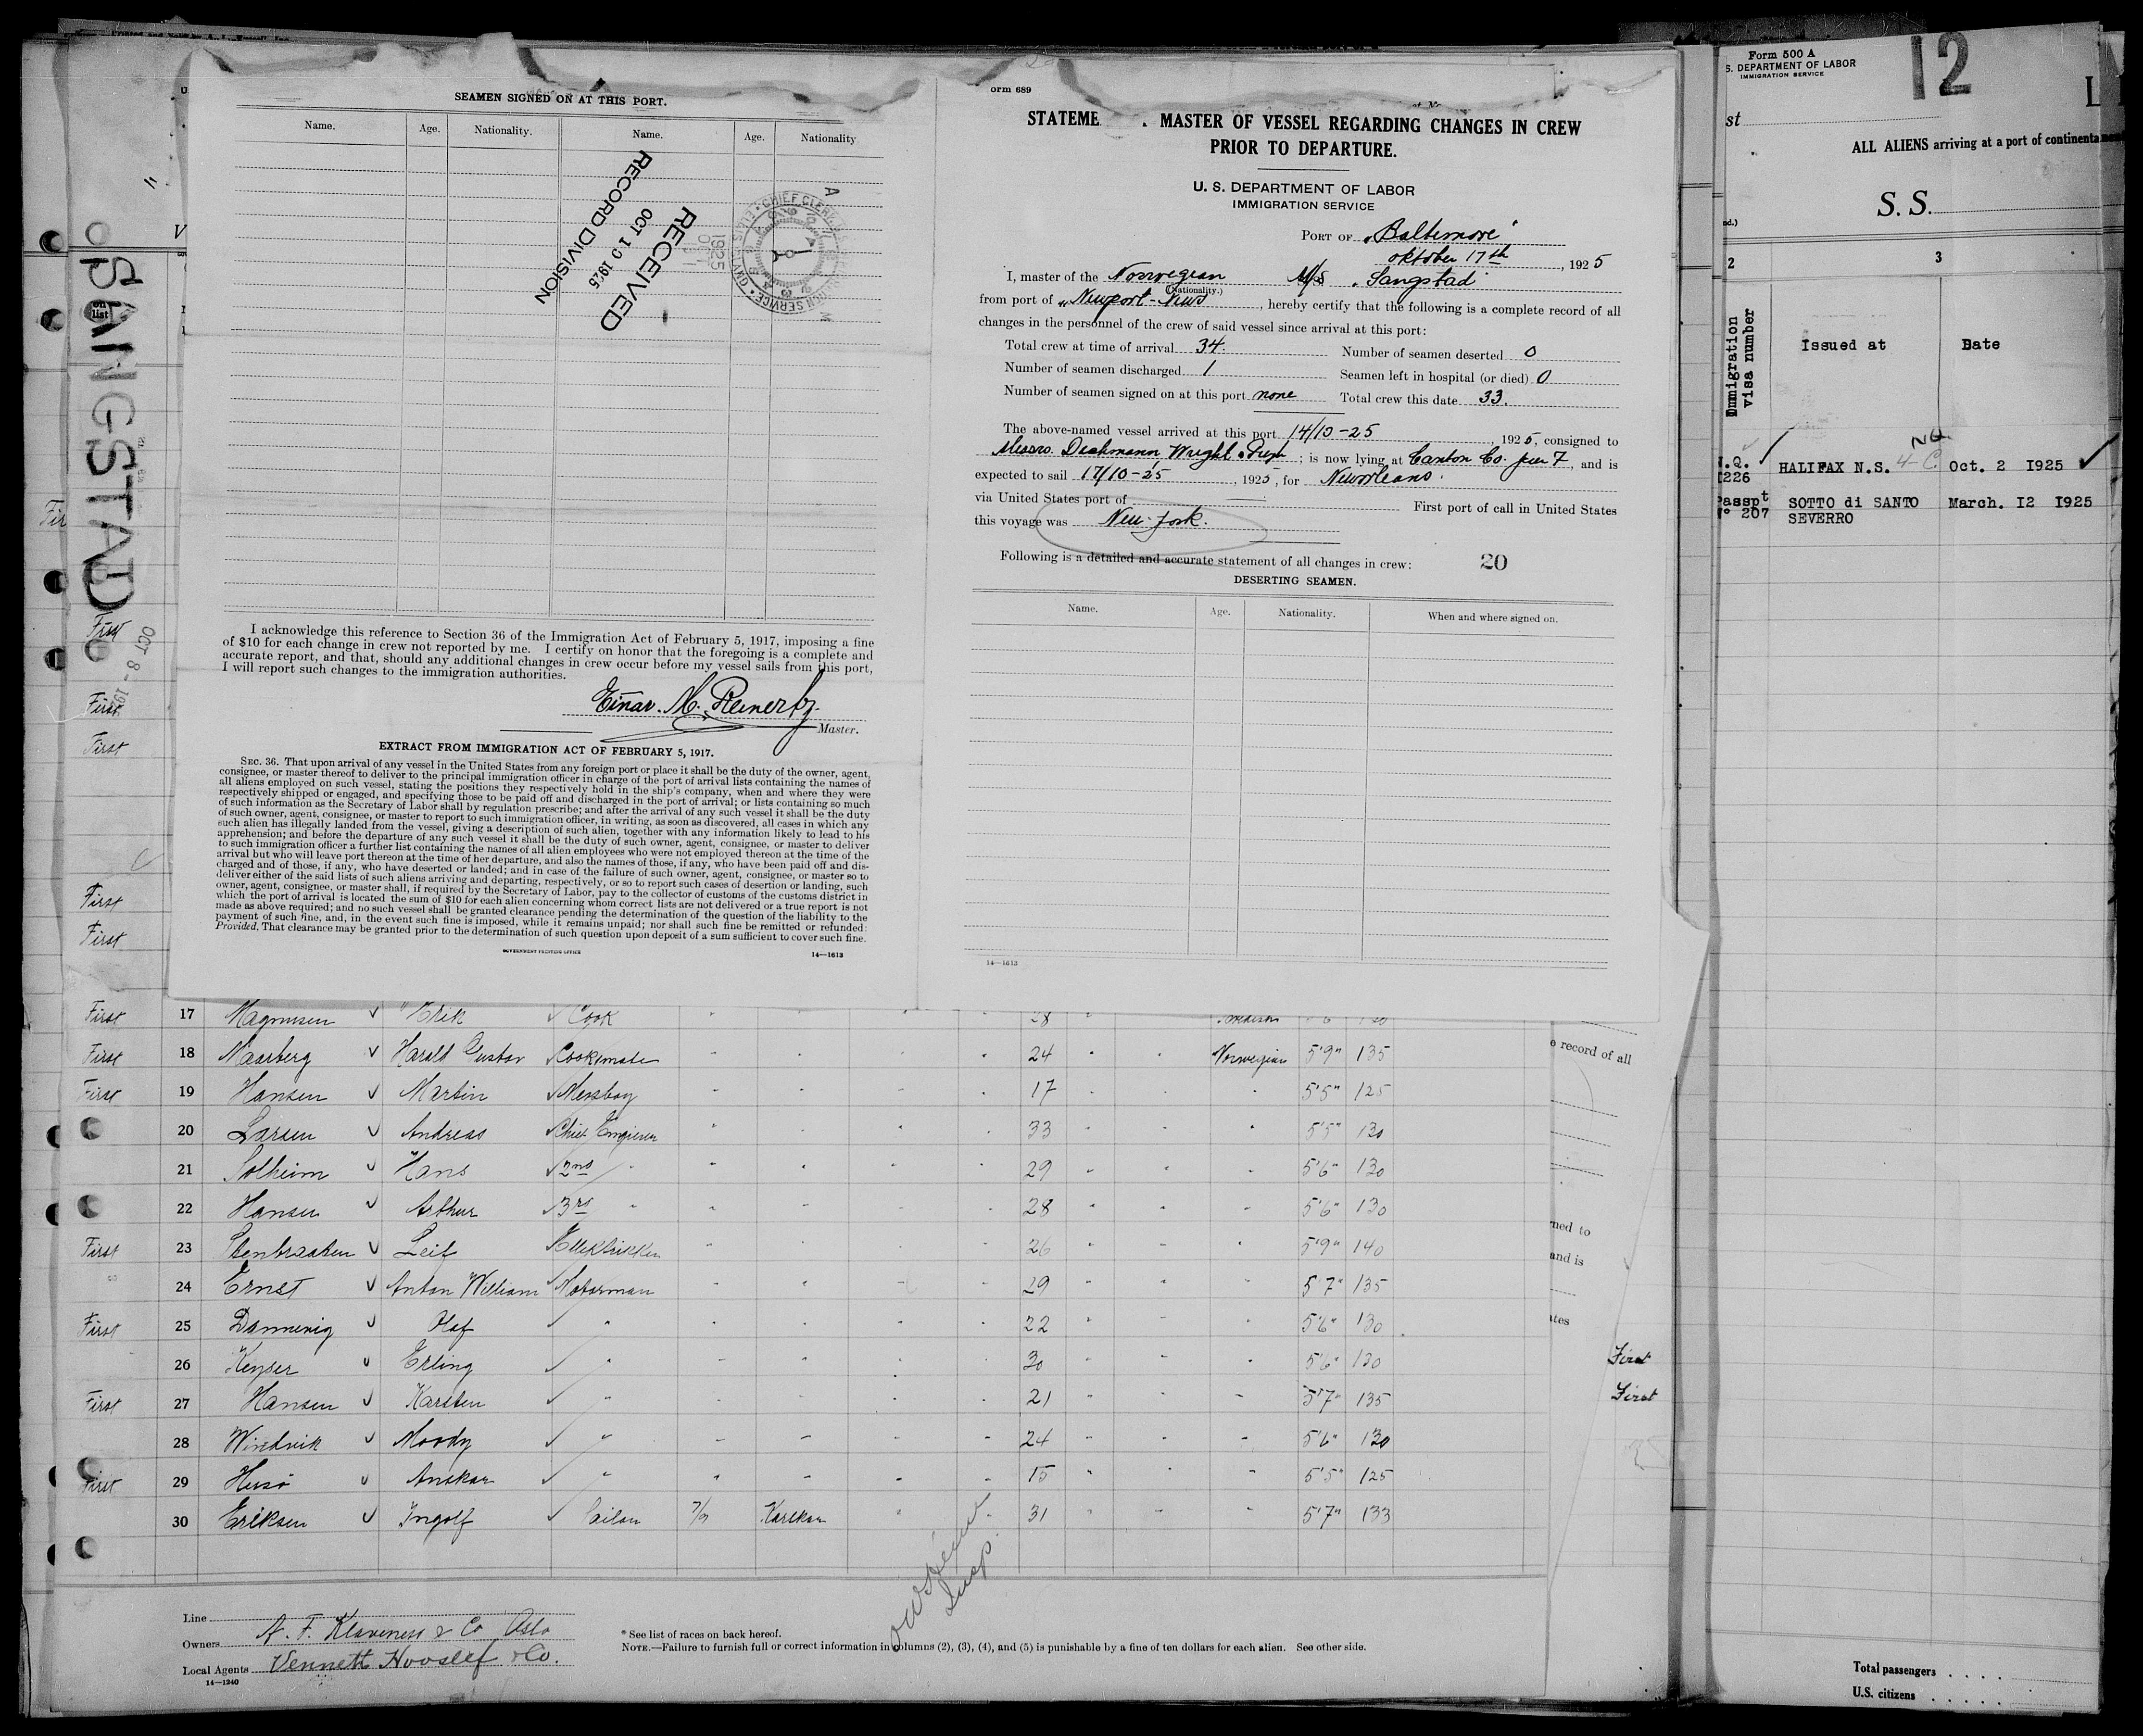 SEAMEN SIGNED ON AT THIS PORT.
Name. Age. Nationality. Name. Age. Nationality
RECEIVED
OCT 1 1925
RECORD DIVISION
I acknowledge this reference to Section 36 of the Immigration Act of February 5, 1917, imposing a fine
of $10 for each change in crew not reported by me. I certify on honor that the foregoing is a complete and
accurate report, and that, should any additional changes in crew occur before my vessel sails from this port,
I will report such changes to the immigration authorities.
Einar. M. Reinertz.
Master.
EXTRACT FROM IMMIGRATION ACT OF FEBRUARY 5, 1917.
SEC. 36. That upon arrival of any vessel in the United States from any foreign port or place it shall be the duty of the owner, agent,
consignee, or master thereof to deliver to the principal immigration officer in charge of the port of arrival lists containing the names of
all aliens employed on such vessel, stating the positions they respectively hold in the ship's company, when and where they were
respectively shipped or engaged, and specifying those to be paid off and discharged in the port of arrival; or lists containing so much
of such information as the Secretary of Labor shall by regulation prescribe; and after the arrival of any such vessel it shall be the duty
of such owner, agent, consignee, or master to report to such immigration officer, in writing, as soon as discovered, all cases in which any
such alien has illegally landed from the vessel, giving a description of such alien, together with any information likely to lead to his
apprehension; and before the departure of any such vessel it shall be the duty of such owner, agent, consignee, or master to deliver
to such immigration officer a further list containing the names of all alien employees who were not employed thereon at the time of the
arrival but who will leave port thereon at the time of her departure, and also the names of those, if any, who have been paid off and dis-
charged and of those, if any, who have deserted or landed; and in case of the failure of such owner, agent, consignee, or master so to
deliver either of the said lists of such aliens arriving and departing, respectively, or so to report such cases of desertion or landing, such
owner, agent, consignee, or master shall, if required by the Secretary of Labor, pay to the collector of customs of the customs district in
which the port of arrival is located the sum of $10 for each alien concerning whom correct lists are not delivered or a true report is not
made as above required; and no such vessel shall be granted clearance pending the determination of the question of the liability to the
payment of such fine, and, in the event such fine is imposed, while it remains unpaid; nor shall such fine be remitted or refunded:
Provided, That clearance may be granted prior to the determination of such question upon deposit of a sum sufficient to cover such fine.
GOVERNMENT PRINTING OFFICE 14—1613
orm 689
STATEME MASTER OF VESSEL REGARDING CHANGES IN CREW
PRIOR TO DEPARTURE.
U. S. DEPARTMENT OF LABOR
IMMIGRATION SERVICE
PORT OF „Baltimore"
oktober 17th, 1925
I, master of the Norwegian M/S „Sangstad"
(Nationality.)
from port of „Newport-News, hereby certify that the following is a complete record of all
changes in the personnel of the crew of said vessel since arrival at this port:
Total crew at time of arrival 34. Number of seamen deserted 0
Number of seamen discharged 1 Seamen left in hospital (or died) 0
Number of seamen signed on at this port none Total crew this date 33.
The above-named vessel arrived at this port 14/10-25, 1925, consigned to
Messrs. Wright; is now lying at Canton Co. pier 7, and is
expected to sail 17/10-25, 1925, for Neworleans.
via United States port of First port of call in United States
this voyage was New-York.
Following is a detailed and accurate statement of all changes in crew: 20
DESERTING SEAMEN.
Name. Age. Nationality. When and where signed on.
14—1613
SANGSTAD
OCT 8 - 19
on list
First
First
First
First
First
First 17 Magnusen Erik Cook 28
First 18 Naasberg Harald Gustav Cooksmate 24 Norwegian 5'9" 135
First 19 Hansen Martin Messboy 17 5'5" 125
20 Larsen Andreas Chief Engineer 33 5'5" 130
21 Solheim Hans 2nd 29 5'6" 130
22 Hansen Arthur 3rd 28 5'6" 130
First 23 Leif 26 5'9" 140
24 Ernst Anton William Motorman 29 5'7" 135
First 25 Dannevig Olaf " 22 5'6" 130
26 Keyser Erling " 30 5'6" 130
First 27 Hansen Karsten " 21 5'7" 135
28 Windvik Moody " 24 5'6" 130
First 29 Husø Anskar " 15 5'5" 125
30 Eriksen Ingolf Sailor 7/9 31 5'7" 133
Line
Owners A. F. Klaveness & Co Oslo
Local Agents Co.
14—1240
* See list of races on back hereof.
NOTE.—Failure to furnish full or correct information in columns (2), (3), (4), and (5) is punishable by a fine of ten dollars for each alien. See other side.
Insp.
e record of all
ned to
and is
ates
First
First
Form 500 A
S. DEPARTMENT OF LABOR
IMMIGRATION SERVICE
12
ALL ALIENS arriving at a port of continenta
S. S.
2 3
Immigration visa number Issued at Date
226 HALIFAX N.S. Oct. 2 1925
Passpt SOTTO di SANTO March. 12 1925
N° 207 SEVERRO
Total passengers
U.S. citizens